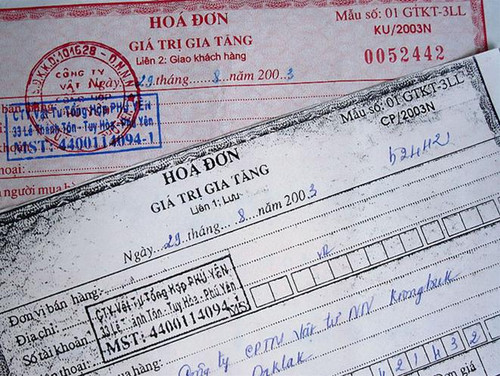 HOÁ ĐƠN
GIÁ TRỊ GIA TĂNG
Liên 2: Giao khách hàng
Ngày 29 tháng 8 năm 2003
Mẫu số: 01 GTKT-3LL
KU/2003N
0052442
CÔNG TY
VẬT
CTY Vật Tư Tổng Hợp PHÚ YÊN
33 Lê Thánh Tôn - Tuy Hòa - Phú Yên
MST: 4400114094-1
người mua
HOÁ ĐƠN
GIÁ TRỊ GIA TĂNG
Liên 1: Lưu
Ngày 29 tháng 8 năm 2003
Mẫu số: 01 GTKT-3LL
CP/2003N
52442
Đơn vị bán hàng:
Địa chỉ:
Số tài khoản
CTY Vật Tư Tổng Hợp PHÚ YÊN
33 Lê ánh Tôn - Tuy Hòa - Phú Yên
MST: 4400114094
MS
Công ty CPTV Vật tư NN Krôngbuk
Daklak
mua hàng
4 2 1 4 3 2
Đơn giá